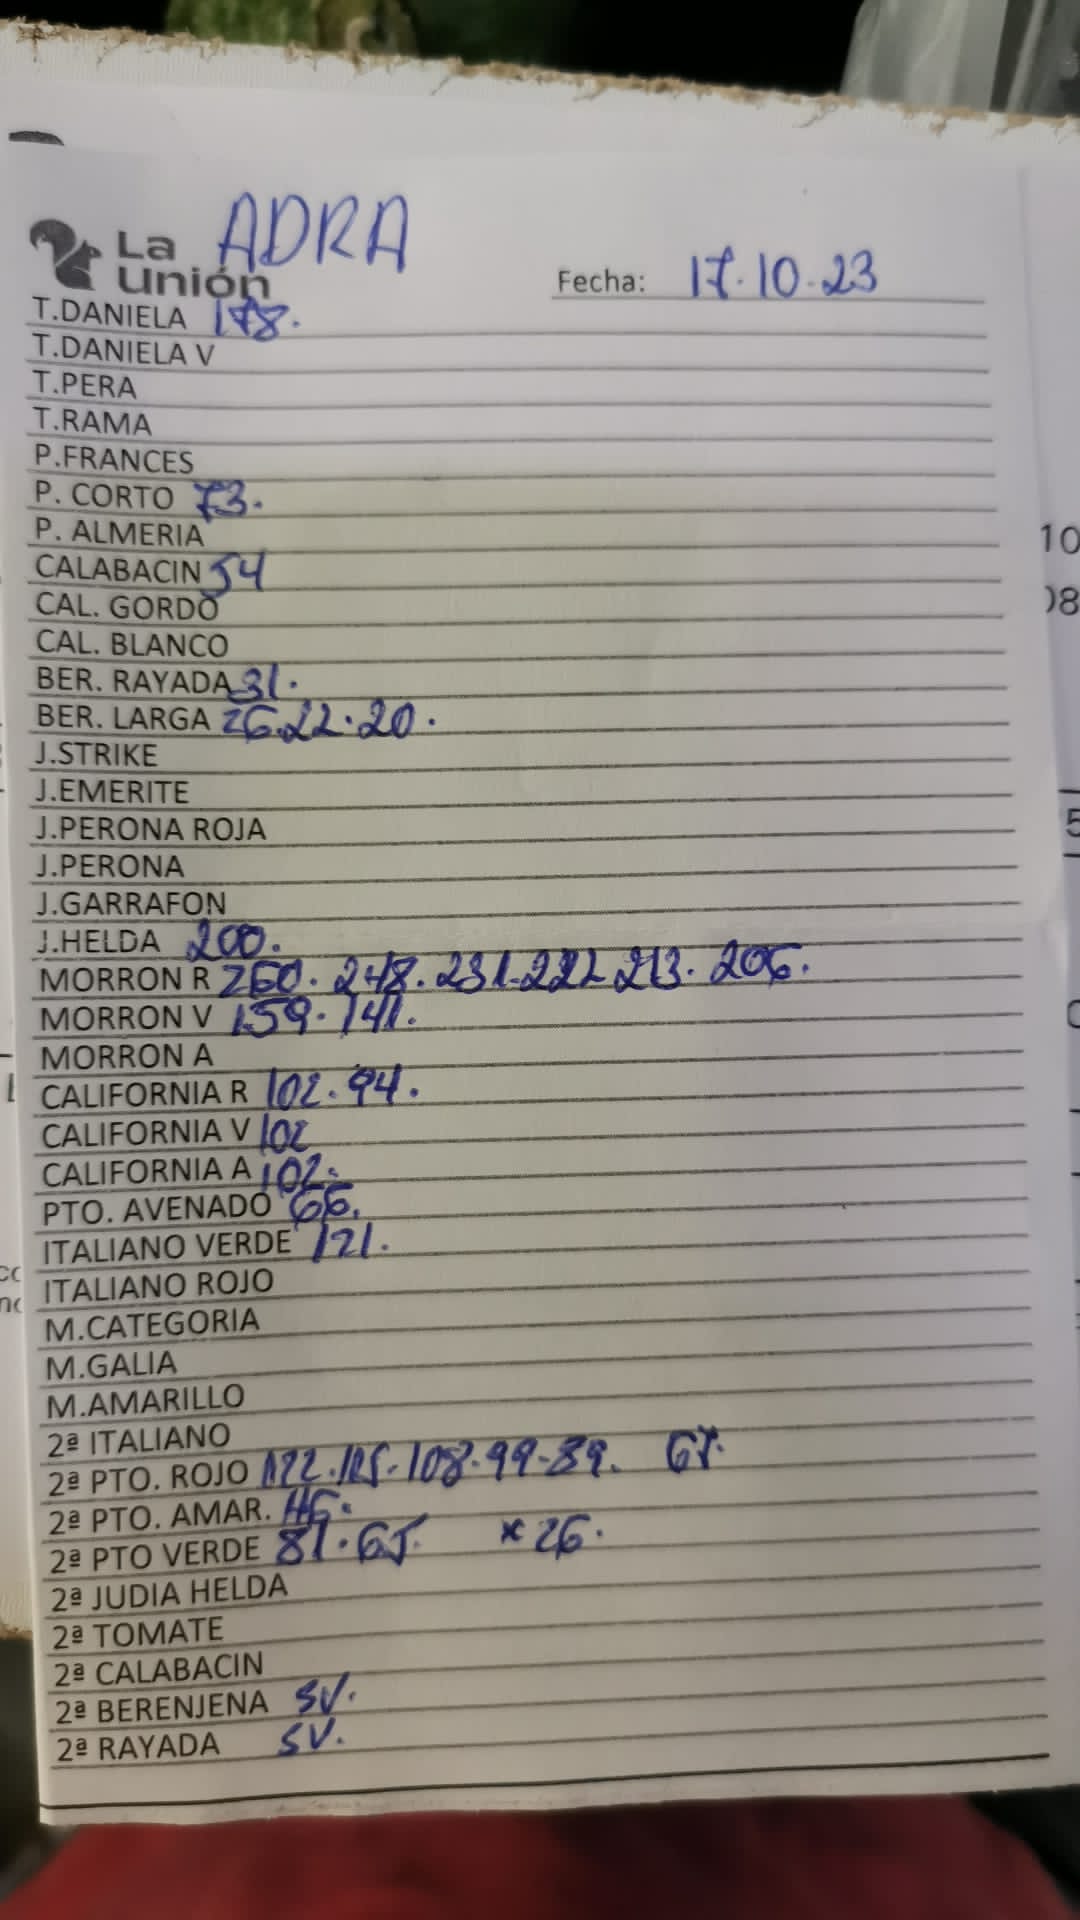 ADRA
La
Unión
Fecha: 17.10.23
T.DANIELA 178.
T.DANIELA V
T.PERA
T.RAMA
P.FRANCES
P. CORTO 73.
P. ALMERIA
CALABACIN 54
CAL. GORDO
CAL. BLANCO
BER. RAYADA 31.
BER. LARGA 26.22.20.
J.STRIKE
J.EMERITE
J.PERONA ROJA
J.PERONA
J.GARRAFON
J.HELDA 200.
MORRON R 260. 248. 231. 222 213. 206.
MORRON V 159. 141.
MORRON A
CALIFORNIA R 102. 94.
CALIFORNIA V 102
CALIFORNIA A 102.
PTO. AVENADO 66.
ITALIANO VERDE 121.
ITALIANO ROJO
M.CATEGORIA
M.GALIA
M.AMARILLO
2ª ITALIANO
2ª PTO. ROJO 122. 115. 108. 99. 89. 67.
2ª PTO. AMAR.
2ª PTO VERDE 81. 65. * 26.
2ª JUDIA HELDA
2ª TOMATE
2ª CALABACIN
2ª BERENJENA SV.
2ª RAYADA SV.